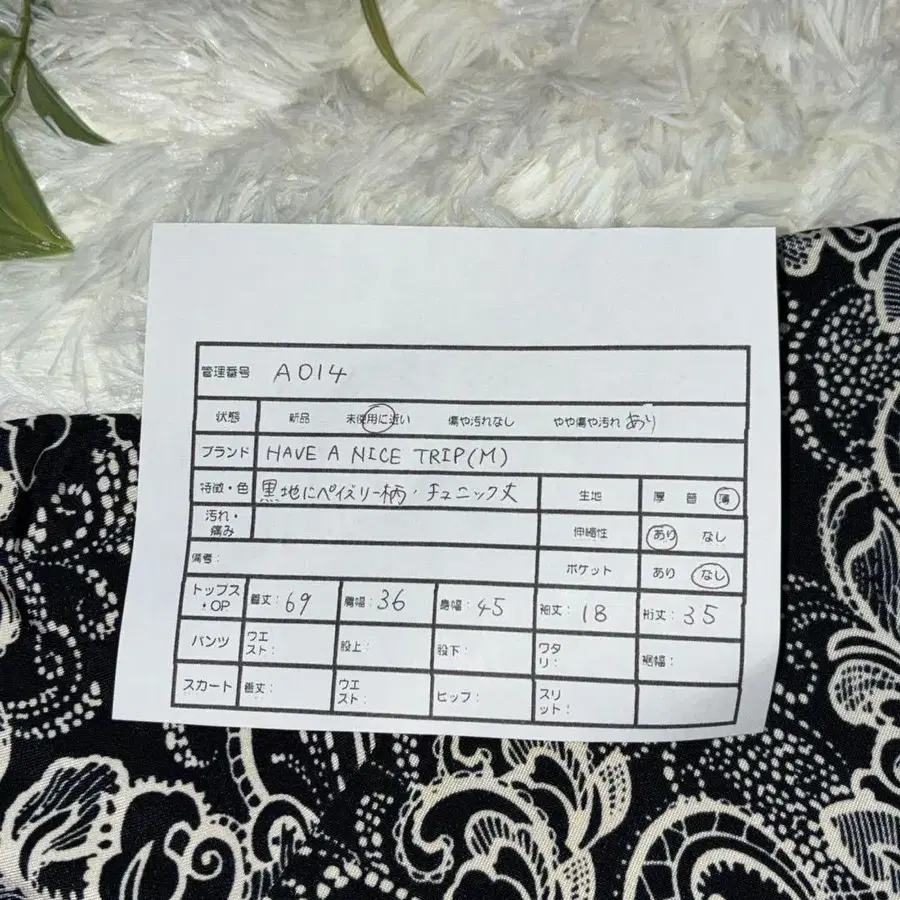 管理番号 A014
状態 新品 未使用に近い 傷や汚れなし やや傷や汚れあり
ブランド HAVE A NICE TRIP(M)
特徴・色 黒地にペイズリー柄・チュニック丈 生地 厚 普 薄
汚れ・痛み 伸縮性 あり なし
備考: ポケット あり なし
トップス・OP 着丈:69 肩幅:36 身幅:45 袖丈:18 裄丈:35
パンツ ウエスト: 股上: 股下: ワタリ: 裾幅:
スカート 着丈: ウエスト: ヒップ: スリット: